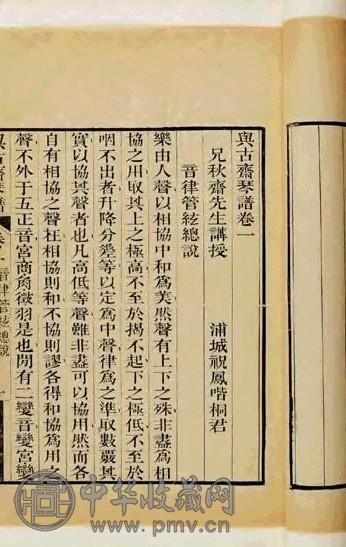 與古齋琴譜卷一
兄秋齋先生講授 浦城祝鳳喈桐君
音律管絃總說
樂由人聲以相協中和為美然聲有上下之殊非盡為相
協之用取其上之極高不至於揭不起下之極低不至於
咽不出者升降分差等以定為中聲律為之準取數嚴其
實以協其聲者也凡高低等聲難非盡可以協用然而各
自有相協之聲在相協則和不協則謬各得和協為用之
聲不外于五正音宮商角徵羽是也閒有二變音變宮變
與古齋琴譜 卷一 音律管絃總說 一
中华收藏网
www.pmv.cn